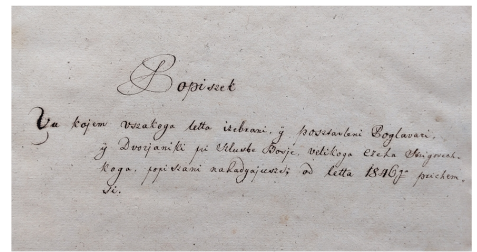 Popiszek
Vu kojem vszakoga letta izebrani, ÿ posztavleni Poglavari,
ÿ Dvorjaniki pri Szlusbe Bosje, velikoga Czeha
koga, popiszani nahadyajuszeji od letta 1846